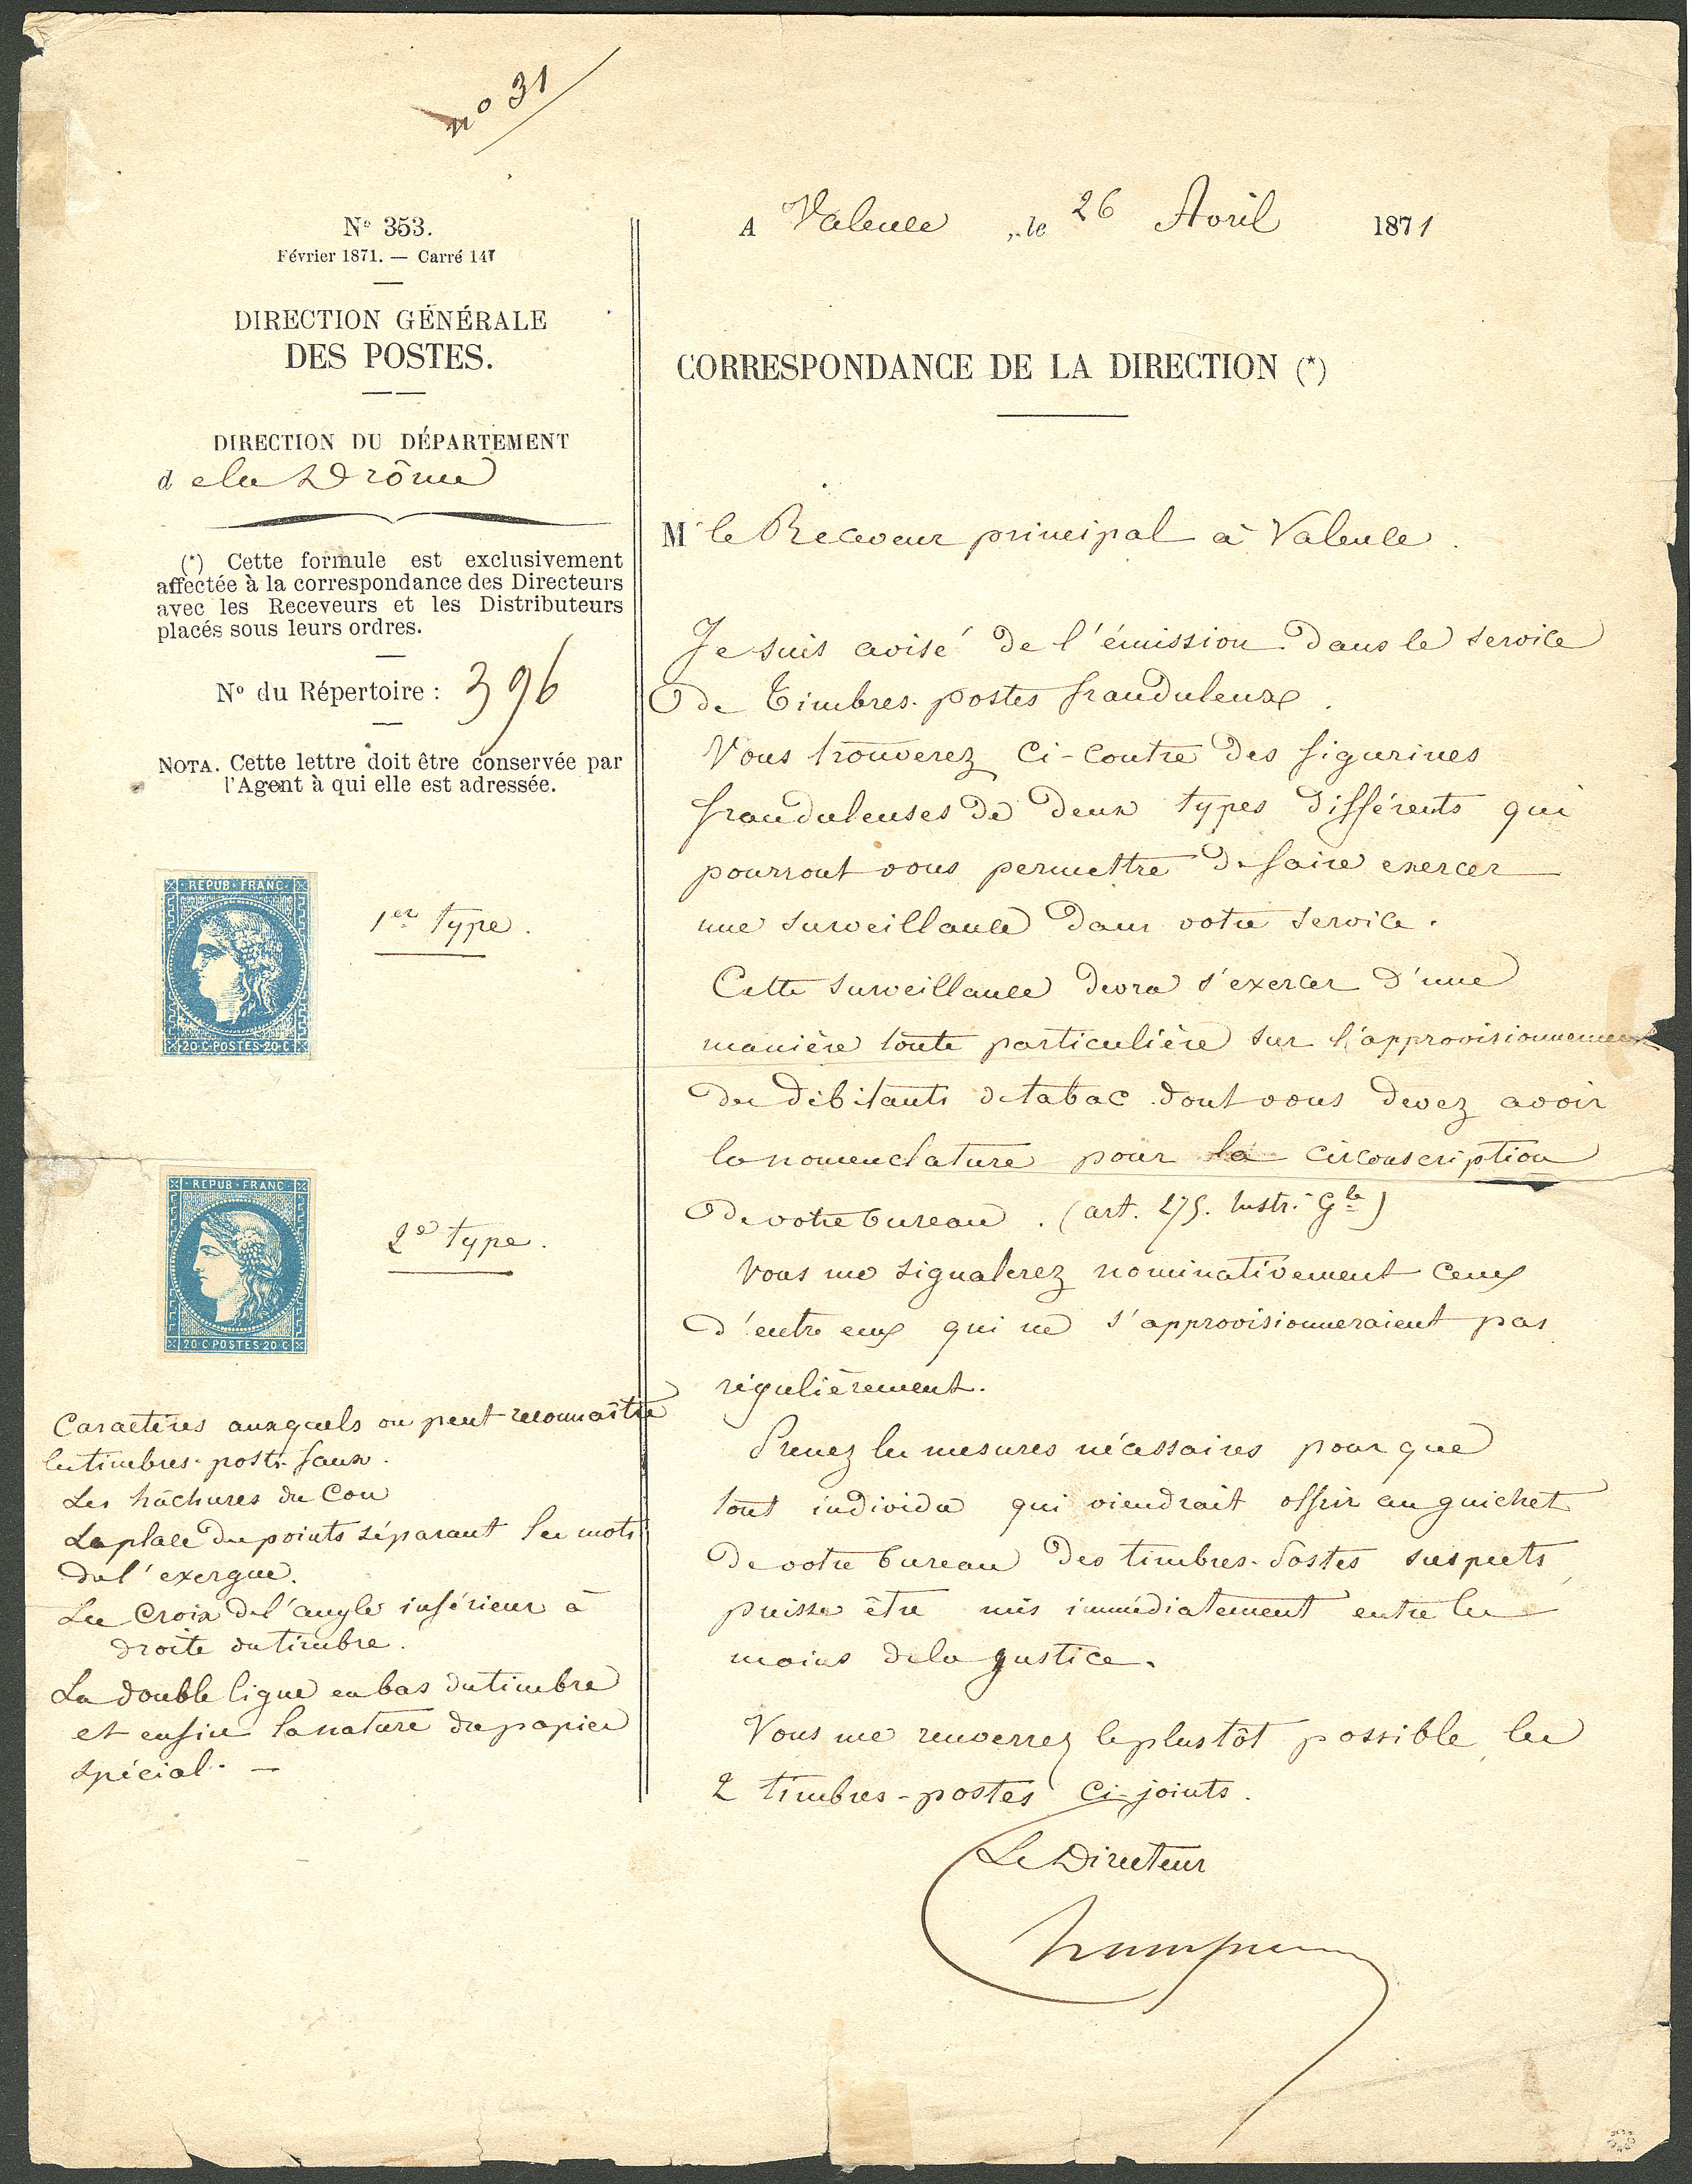 nº 31
Nº 353.
Février 1871. — Carré 147
DIRECTION GÉNÉRALE
DES POSTES.
DIRECTION DU DÉPARTEMENT
de la Drôme
(*) Cette formule est exclusivement
affectée à la correspondance des Directeurs
avec les Receveurs et les Distributeurs
placés sous leurs ordres.
Nº du Répertoire : 396
NOTA. Cette lettre doit être conservée par
l'Agent à qui elle est adressée.
REPUB FRANC
20 C POSTES 20 C
1er type.
REPUB FRANC
20 C POSTES 20 C
2e type.
Caractères auxquels on peut reconnaître
les timbres-poste faux.
Les hâchures du Cou
La place des points séparant les mots
de l'exergue.
La Croix de l'angle inférieur à
droite du timbre.
La double ligne en bas du timbre
et enfin la nature du papier
spécial. —
A Valence, le 26 Avril 1871
CORRESPONDANCE DE LA DIRECTION (*)
M le Receveur principal à Valence.
Je suis avisé de l'émission dans le service
de Timbres-postes frauduleux.
Vous trouverez Ci-Contre des figurines
frauduleuses de deux types différents qui
pourront vous permettre de faire exercer
une surveillance dans votre service.
Cette surveillance devra s'exercer d'une
manière toute particulière sur l'approvisionnement
des débitants de tabac dont vous devez avoir
la nomenclature pour la circonscription
de votre bureau. (art. 275. Instr. Gle)
Vous me signalerez nominativement ceux
d'entre eux qui ne s'approvisionneraient pas
régulièrement.
Prenez les mesures nécessaires pour que
tout individu qui viendrait offrir au guichet
de votre bureau des timbres-Postes suspects,
puisse être mis immédiatement entre les
mains de la justice.
Vous me renverrez le plustôt possible les
2 timbres-postes Ci-joints.
Le Directeur